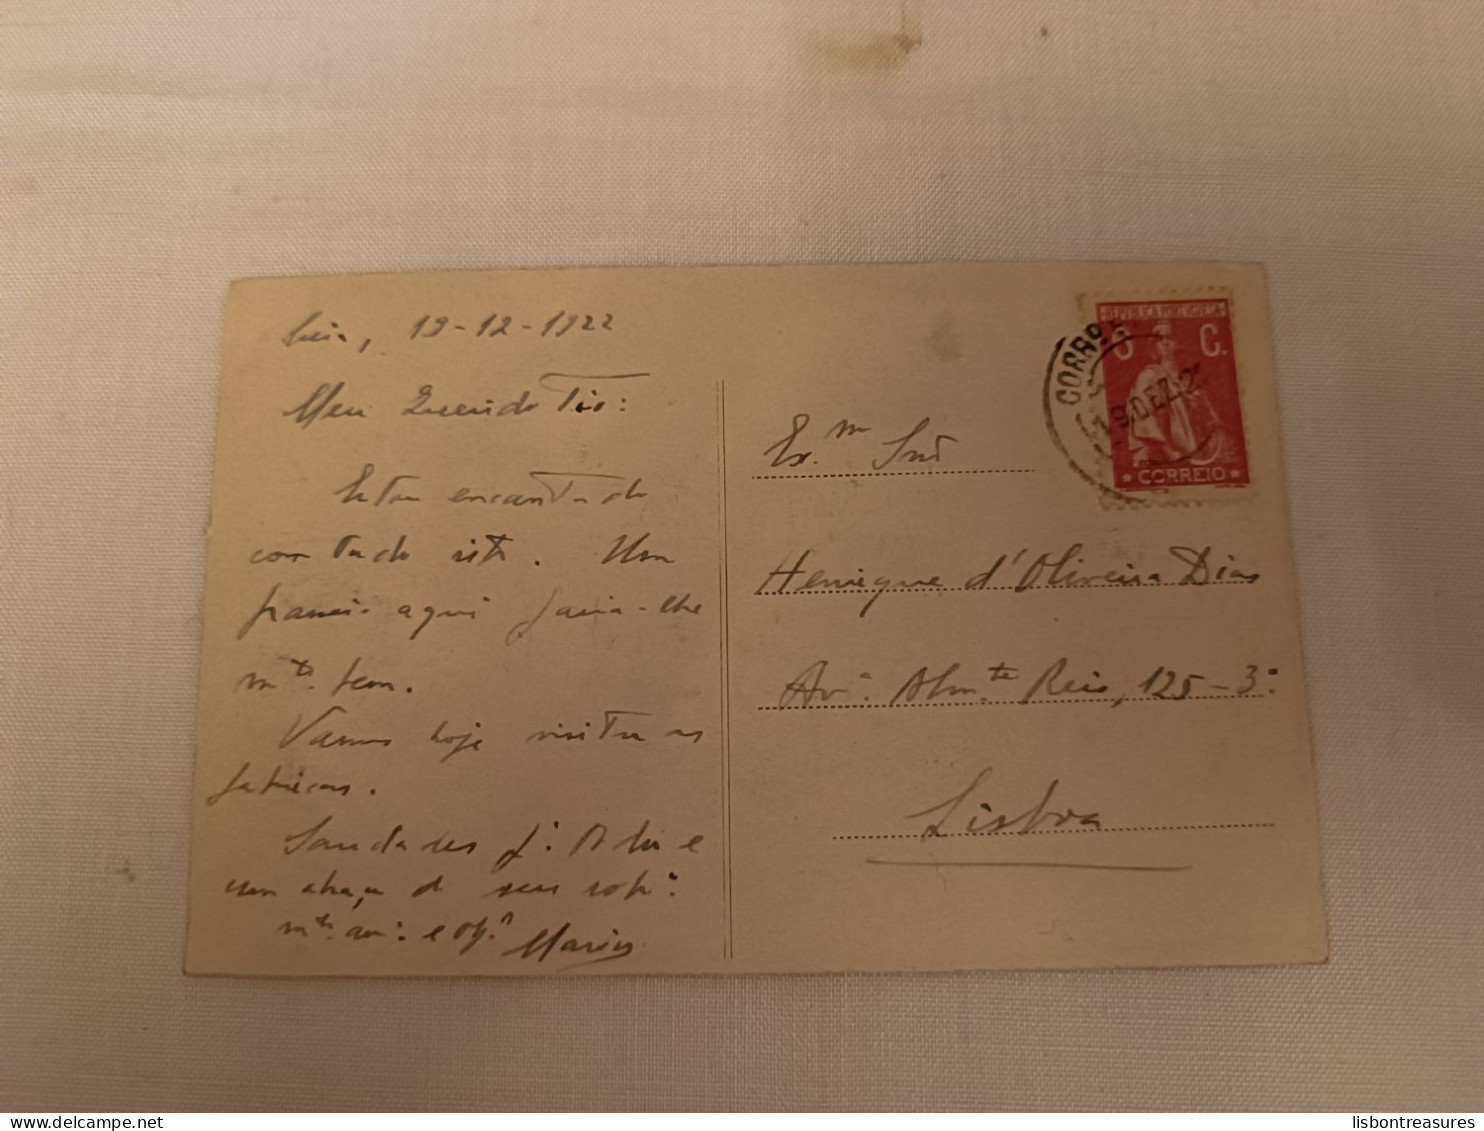 19-12-1922
Meu Querido Tio:
Estou encantado
com tudo isto. Um
passeio aqui faria-lhe
m.to bem.
Vamos hoje visitar as
fabricas.
Saudades
um abraço do seu sob.º
m.to am.º e obg.º
Ex.mo Snr
Henrique d'Oliveira Dias
Av.ª Alm.te Reis, 125-3.º
Lisboa
REPUBLICA PORTUGUESA
6 C.
CORREIO
CORREI
19.DEZ.2
lisbontreasures.com